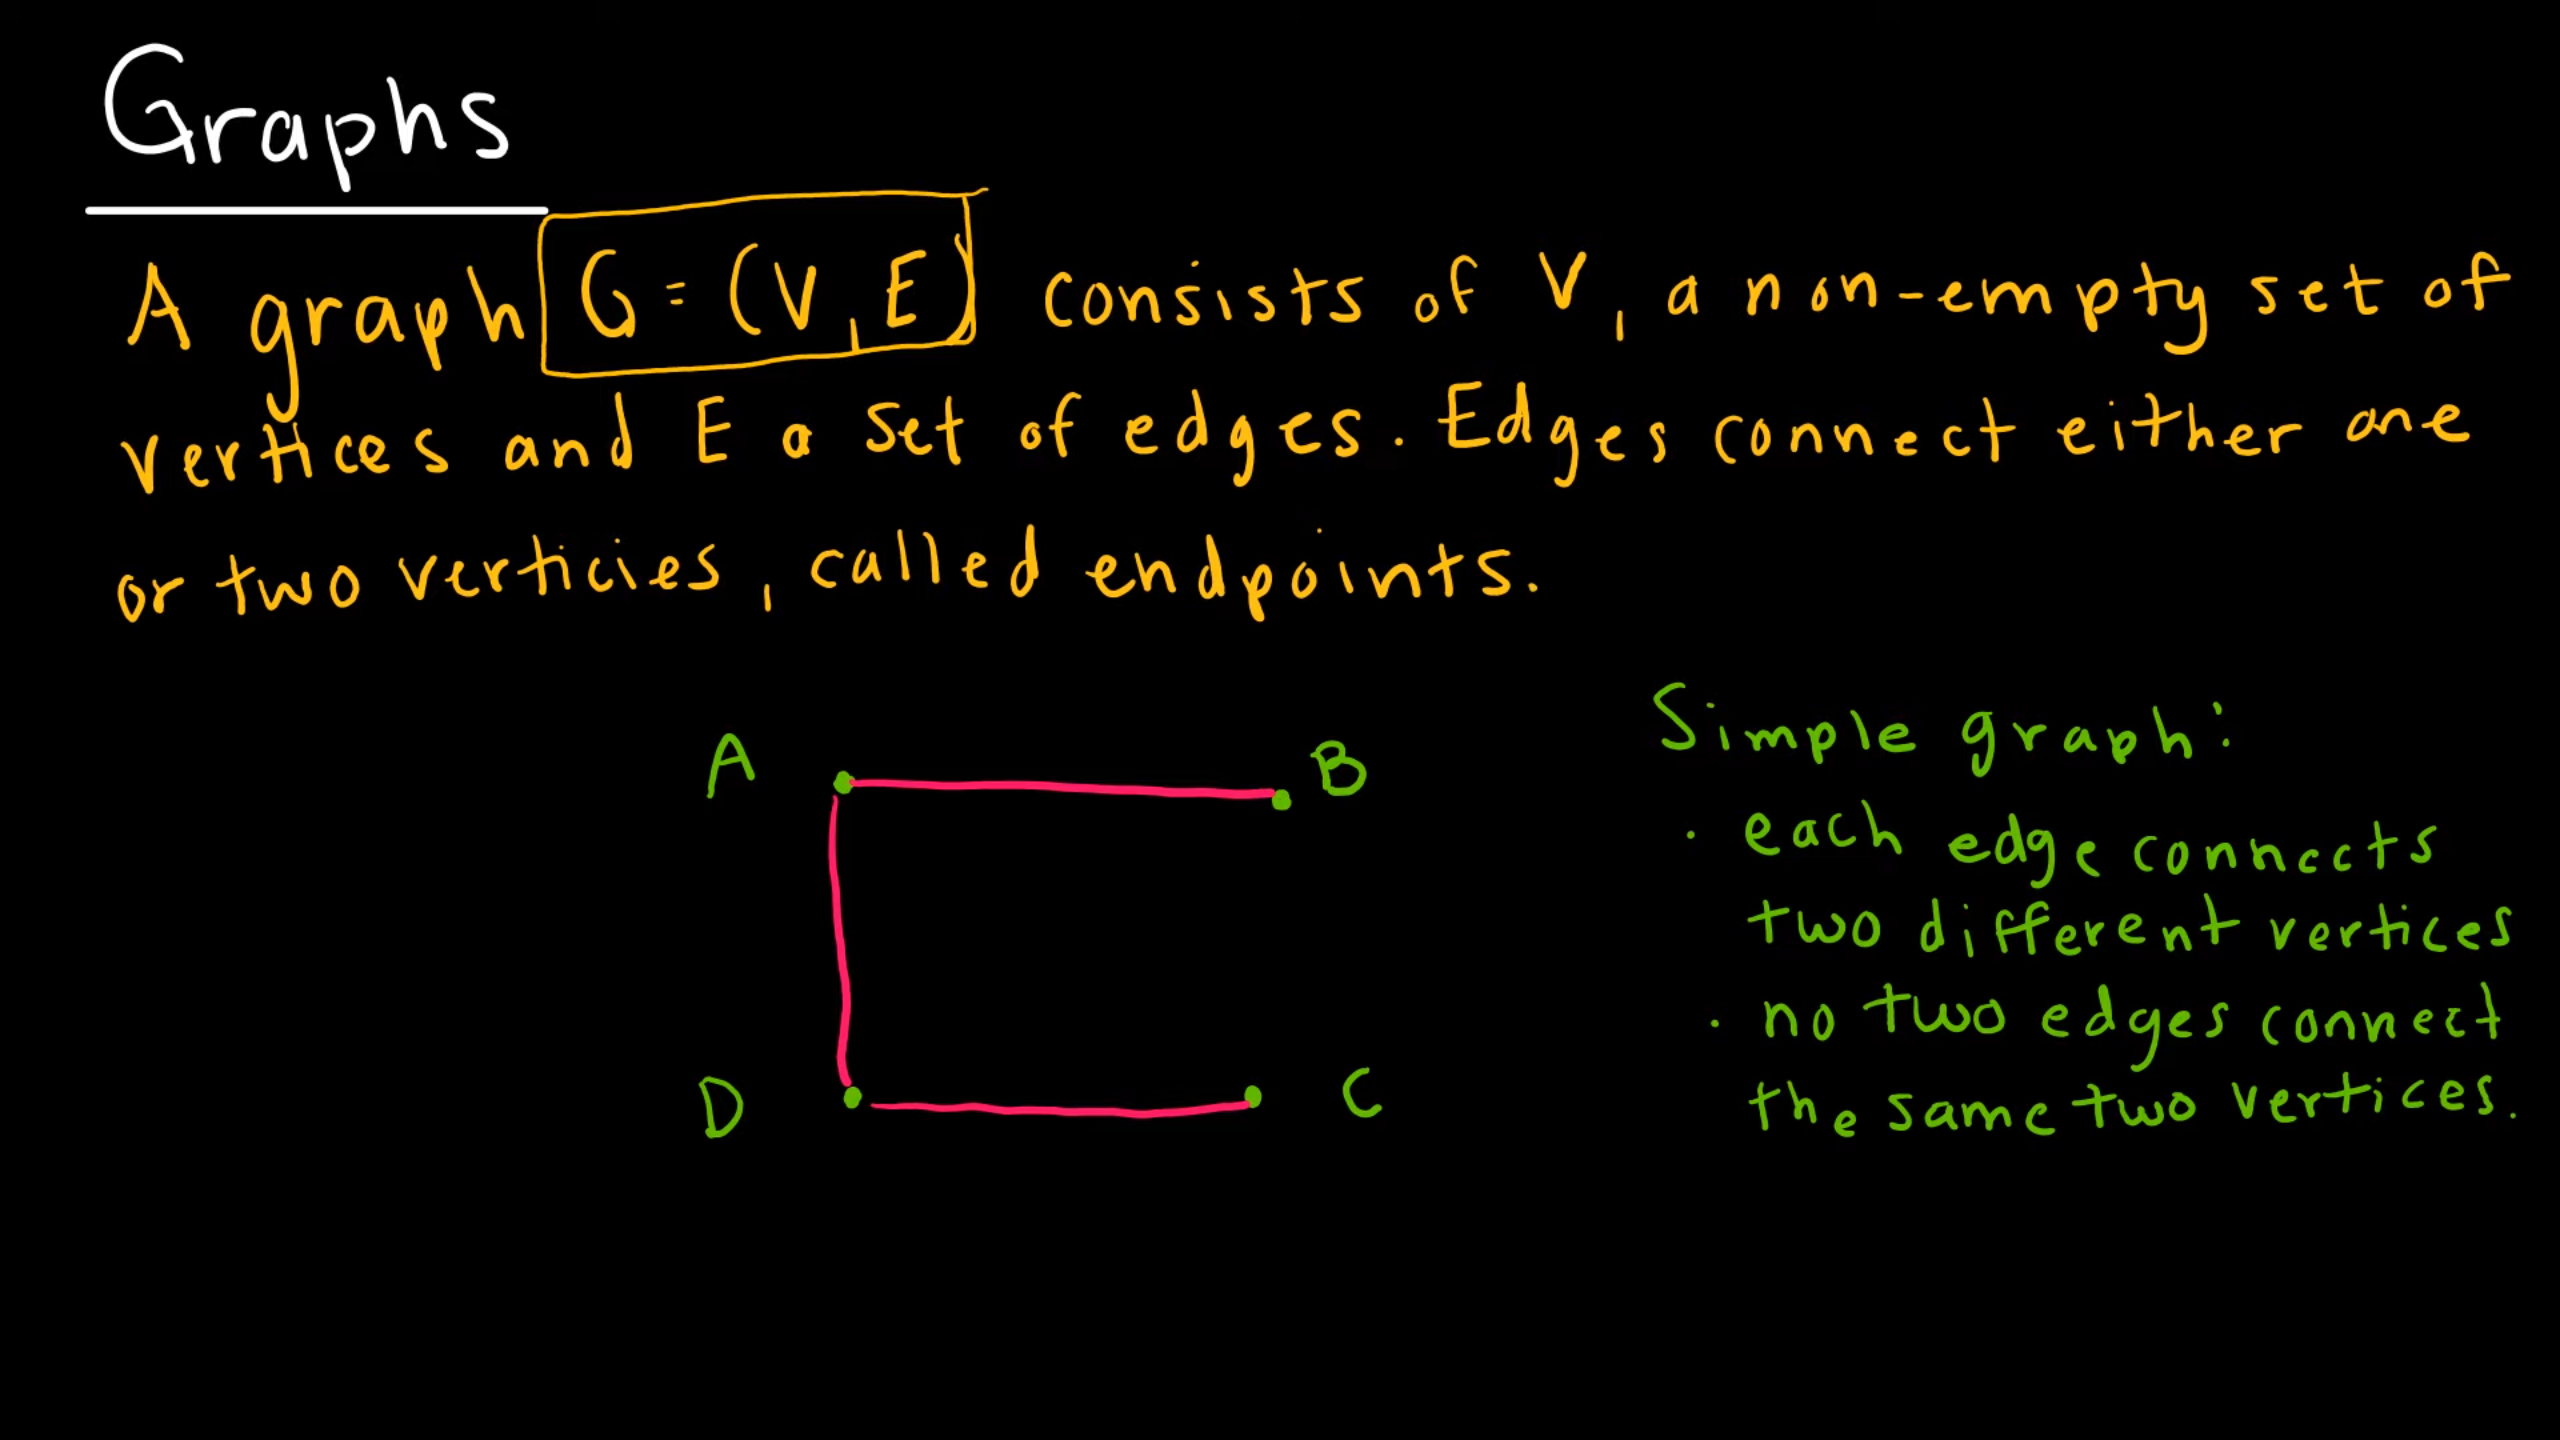 Graphs
A graph G = (V, E) consists of V, a non-empty set of
vertices and E a set of edges. Edges connect either one
or two verticies, called endpoints.
A B
D C
Simple graph:
· each edge connects
two different vertices
· no two edges connect
the same two vertices.